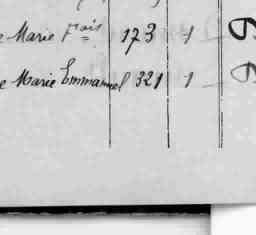 e Marie Fçois 173 1
e Marie Emmanuel 321 1